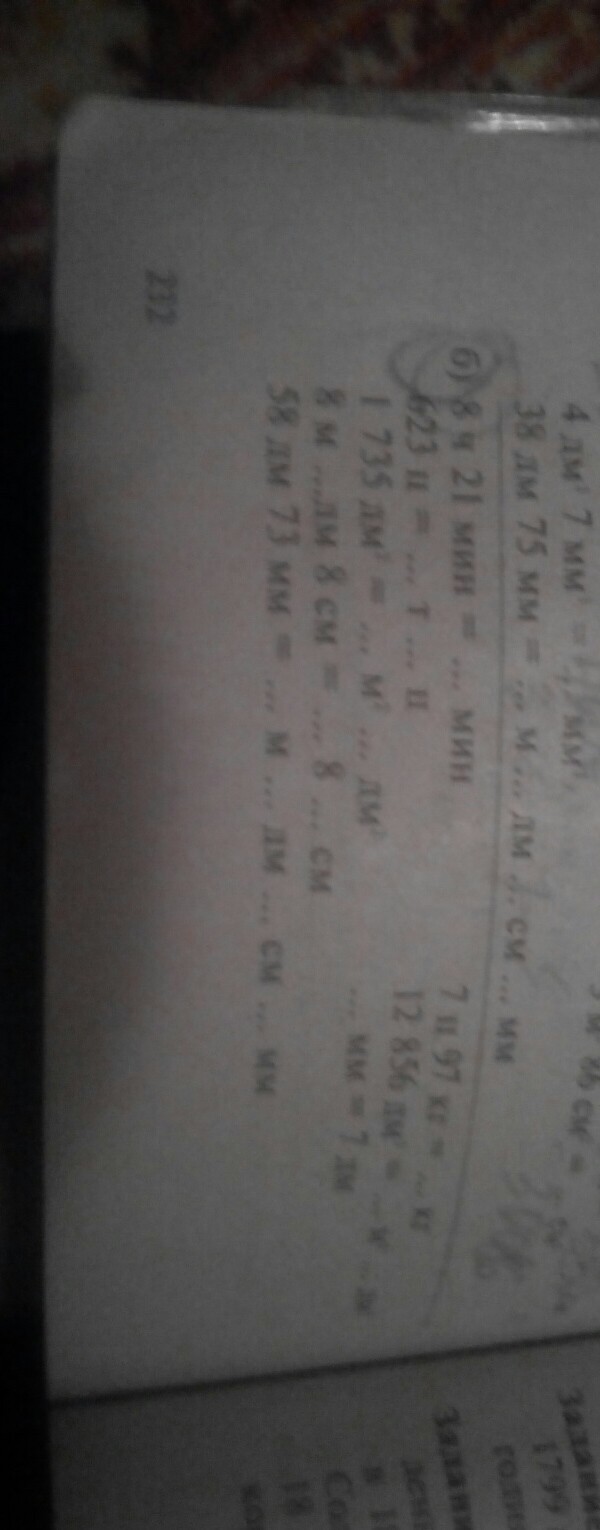 4 дм² 7 мм² = мм²
86 см² =
38 дм 75 мм = ... м ... дм ... см ... мм
б) 8 ч 21 мин = ... мин 7 ц 97 кг = ... кг
623 ц = ... т ... ц 12 856 дм² = ... м² ... дм²
1 735 дм² = ... м² ... дм² ... мм = 7 дм
8 м ... дм 8 см = ... 8 ... см
58 дм 73 мм = ... м ... дм ... см ... мм
232
Задание
1799
Задани